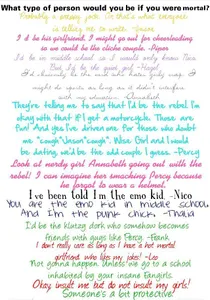 What type of person would you be if you were mortal?
Probably a preppy jock. Or that's what everyone
is telling me so
I'd be his girlfriend. I might go out for cheerleading
so we could be the cliche couple. -Piper
I'd be in middle school so I would
I'd be
my education. -Annabeth
They're telling me to say that I'd be the rebel. I'm
okay with that if I get a motorcycle. Those are
fun! And yes I've driven one. For those who doubt
me *cough*Jason*cough*. Wise Girl and I would
be dating, we'd be the odd couple I guess. -Percy
Look at nerdy girl Annabeth going out with the
rebel! I can imagine her smacking Percy because
he forgot to wear a helmet.
I've been told I'm the emo kid -Nico
You are the emo kid in middle school.
And I'm the punk chick. -Thalia
I'd be the klutzy dork who somehow becomes
friends with guys like Percy. -Frank
I don't really care as long as I have a hot mortal
girlfriend who likes my jokes! -Leo
Not gonna happen unless we go to a school
inhabited by your insane fangirls.
Okay insult me but do not insult my girls!
Someone's a bit protective!